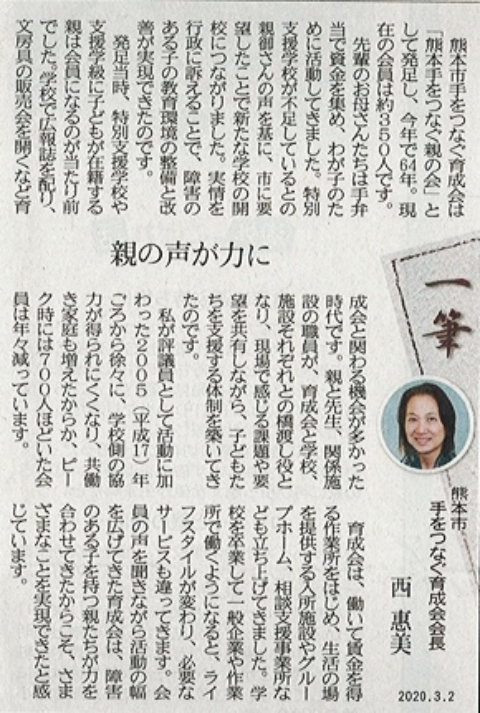 一筆
熊本市
手をつなぐ育成会会長
西 惠美
親の声が力に
熊本市手をつなぐ育成会は
「熊本手をつなぐ親の会」と
して発足し、今年で64年。現
在の会員は約350人です。
先輩のお母さんたちは手弁
当で資金を集め、わが子のた
めに活動してきました。特別
支援学校が不足しているとの
親御さんの声を基に、市に要
望したことで新たな学校の開
校につながりました。実情を
行政に訴えることで、障害の
ある子の教育環境の整備と改
善が実現できたのです。
発足当時、特別支援学校や
支援学級に子どもが在籍する
親は会員になるのが当たり前
でした。学校で広報誌を配り、
文房具の販売会を開くなど育
成会と関わる機会が多かった
時代です。親と先生、関係施
設の職員が、育成会と学校、
施設それぞれとの橋渡し役と
なり、現場で感じる課題や要
望を共有しながら、子どもた
ちを支援する体制を築いてき
たのです。
私が評議員として活動に加
わった2005（平成17）年
ごろから徐々に、学校側の協
力が得られにくくなり、共働
き家庭も増えたからか、ピー
ク時には700人ほどいた会
員は年々減っています。
育成会は、働いて賃金を得
る作業所をはじめ、生活の場
を提供する入所施設やグルー
プホーム、相談支援事業所な
ども立ち上げてきました。学
校を卒業して一般企業や作業
所で働くようになると、ライ
フスタイルが変わり、必要な
サービスも違ってきます。会
員の声を聞きながら活動の幅
を広げてきた育成会は、障害
のある子を持つ親たちが力を
合わせてきたからこそ、さま
ざまなことを実現できたと感
じています。
2020.3.2